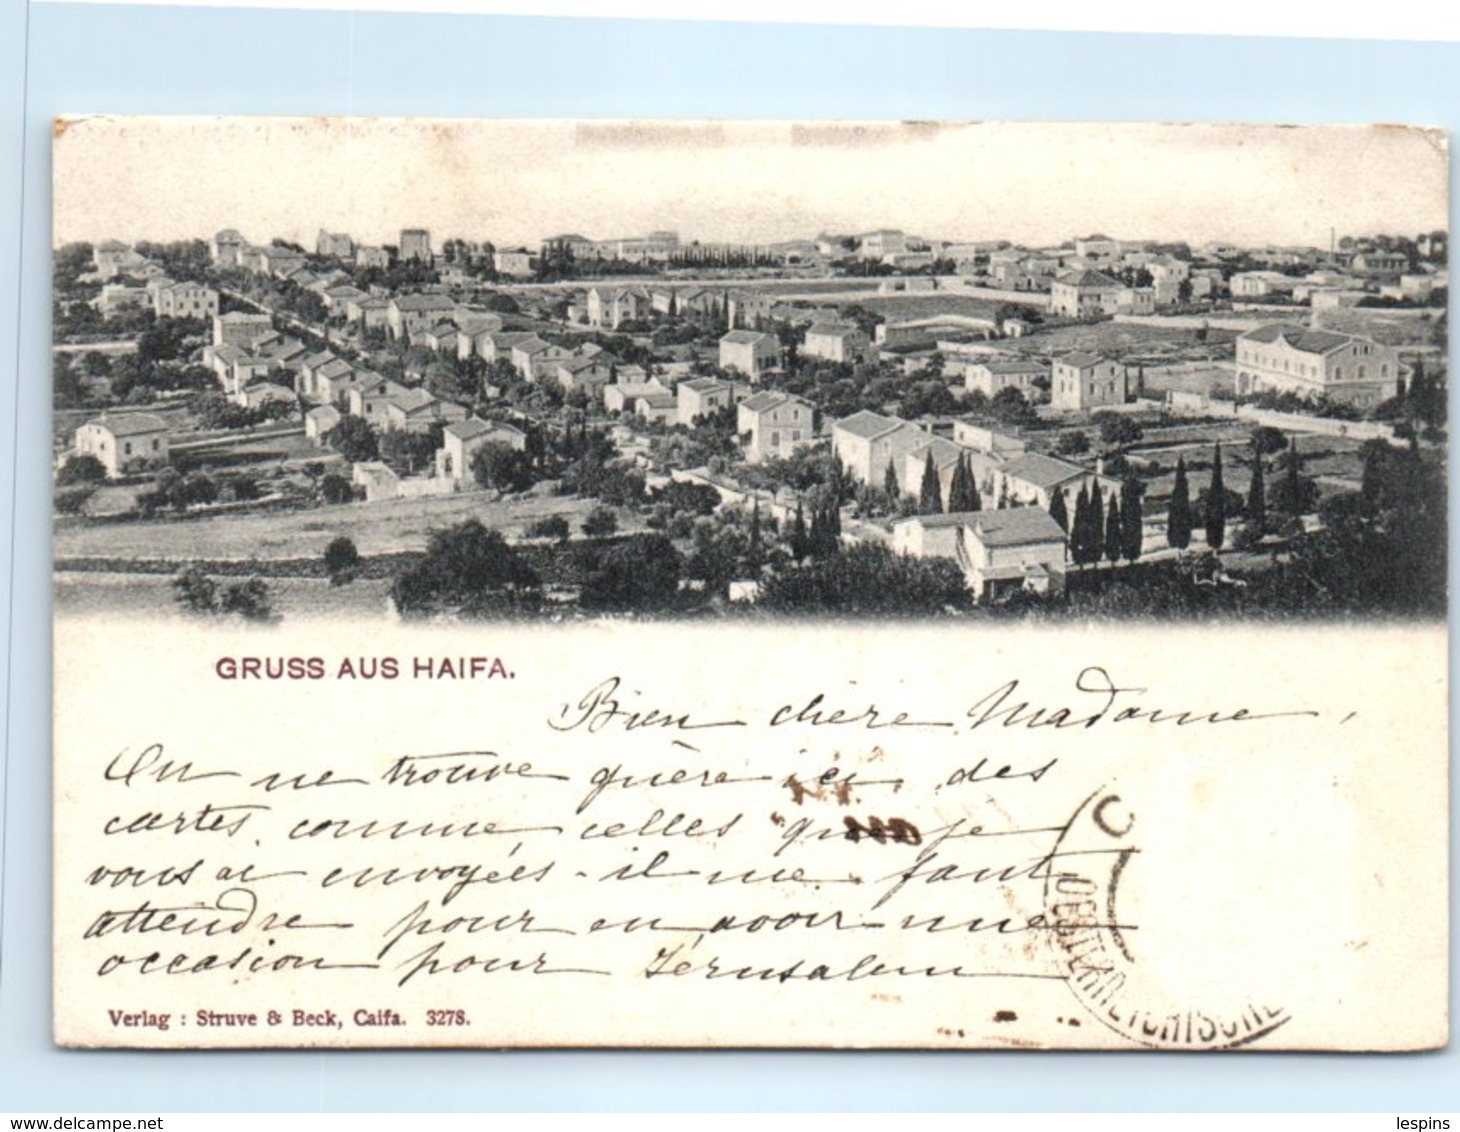 GRUSS AUS HAIFA.
Bien chère Madame,
On ne trouve guère ici des
cartes comme celles que je
vous ai envoyées - il me faut
attendre pour en avoir une
occasion pour Jérusalem
OESTERREICHISCHE
Verlag : Struve & Beck, Caifa. 3278.
delcampe.net
lespins